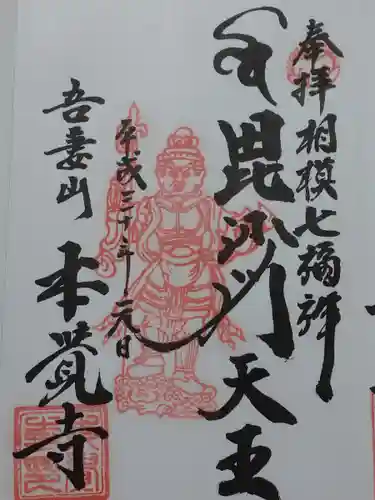 奉拝 相模七福神
毘沙门天王
平成三十年元日
吾妻山 本覚寺